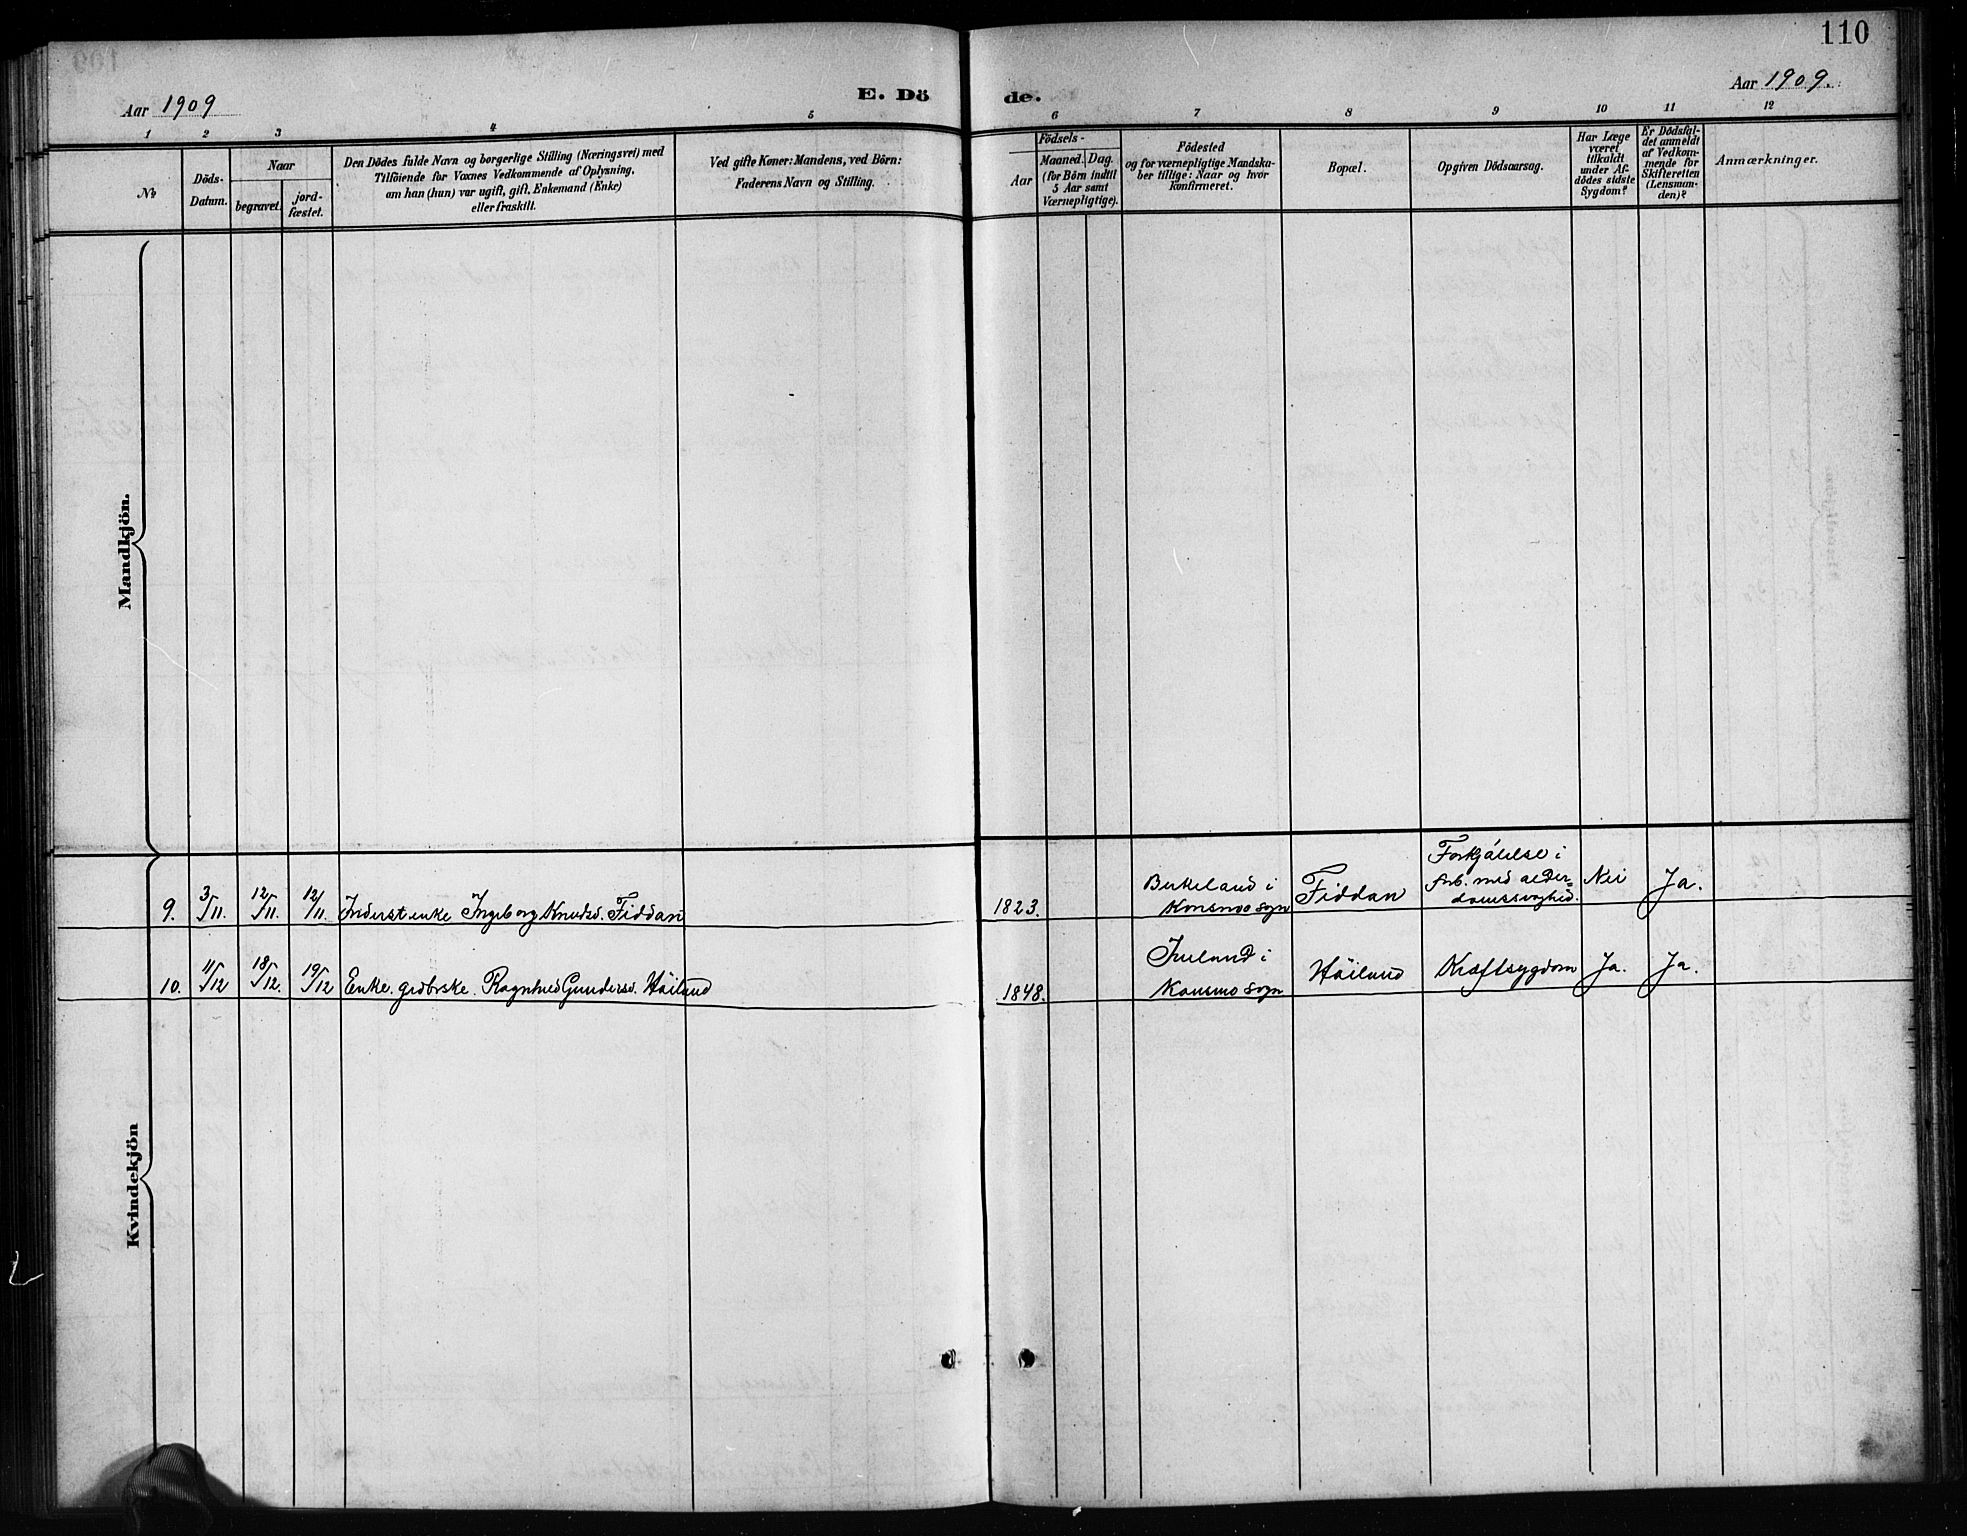 110
Aar 1909
E. Dö
de.
Aar 1909.
1 2 3 4 5 6 7 8 9 10 11 12
No
Döds-
Datum.
Naar
begravet.
jord-
fæstet.
Den Dödes fulde Navn og borgerlige Stilling (Næringsvei) med
Tilföiende for Voxnes Vedkommende af Oplysning,
om han (hun) var ugift, gift, Enkemand (Enke)
eller fraskilt.
Ved gifte Koner: Mandens, ved Börn:
Faderens Navn og Stilling.
Födsels-
Aar
Maaned. Dag.
(for Börn indtil
5 Aar samt
Værnepligtige).
Födested
og for værnepligtige Mandska-
ber tillige: Naar og hvor
konfirmeret.
Bopæl.
Opgiven Dödsaarsag.
Har Læge
været
tilkaldt
under Af-
dödes sidste
Sygdom?
Er Dödsfal-
det anmeldt
af Vedkom-
mende for
Skifteretten
(Lensman-
den)?
Anmærkninger.
Mandkjön.
Kvindekjön
9. 3/11. 12/11. 12/11. Inderst enke Ingeborg Knudsd. Fiddan
1823.
Birkeland i
Konsmo sogn
Fiddan
Forkjölelse i
forb. med alder=
domssvaghed.
Nei
Ja.
10. 11/12 18/12. 19/12 Enke. grdbrske. Ragnhild Gundersd. Höiland
1848.
i
Konsmo sogn
Höiland
Kræftsygdom
Ja.
Ja.